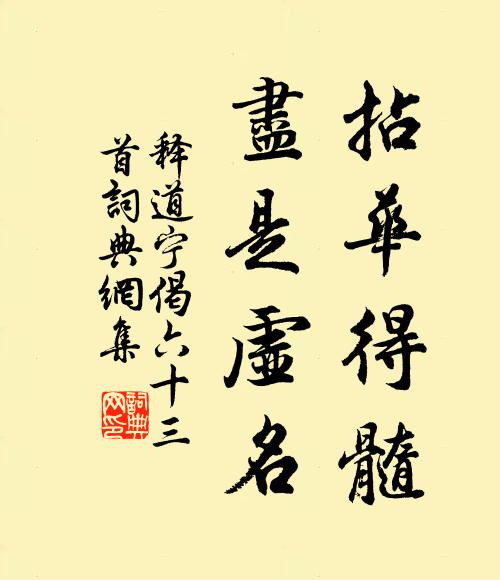 拈華得髓
盡是虛名
释道宁偈六十三
首詞典網集
詞典
网印